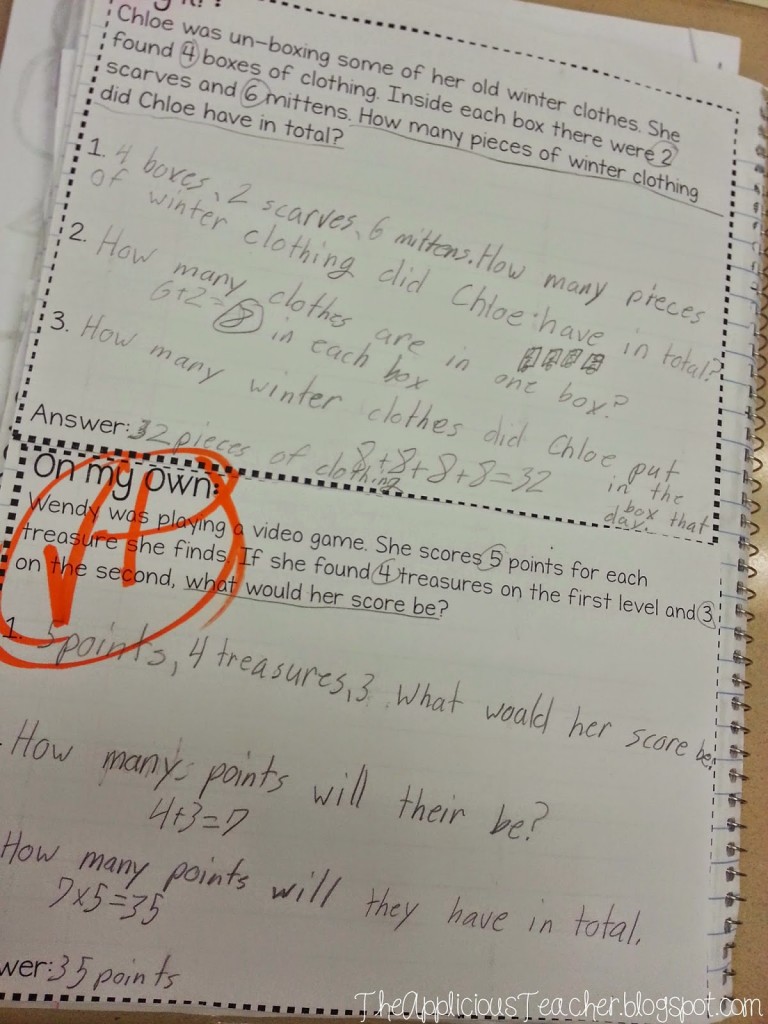 Chloe was un-boxing some of her old winter clothes. She
found 4 boxes of clothing. Inside each box there were 2
scarves and 6 mittens. How many pieces of winter clothing
did Chloe have in total?
1. 4 boxes, 2 scarves, 6 mittens. How many pieces
of winter clothing did Chloe have in total?
2. How many clothes are in one box?
6+2=8 in each box
3. How many winter clothes did Chloe put
in the
box that
day.
8+8+8+8=32
Answer: 32 pieces of clothing
On my own:
Wendy was playing a video game. She scores 5 points for each
treasure she finds. If she found 4 treasures on the first level and 3
on the second, what would her score be?
1. 5 points, 4 treasures, 3 What would her score be.
How many points will their be?
4+3=7
How many points will they have in total.
7x5=35
wer: 35 points
TheAppliciousTeacher.blogspot.com